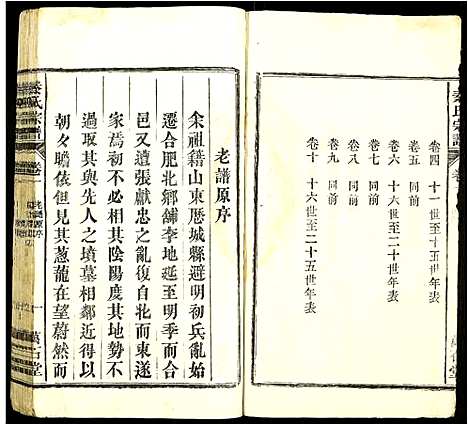 秦氏宗譜
卷四 十一世至十五世年表
卷五 同前
卷六 十六世至二十世年表
卷七 同前
卷八 同前
卷九 同前
卷十 十六世至二十五世年表
老譜原序
余祖籍山東歷城縣避明初兵亂始
遷合肥北鄉舖李地延至明季而合
邑又遭張獻忠之亂復自北而東遂
家焉初不必相其陰陽度其地勢不
過取其與先人之墳墓相鄰近得以
朝夕瞻依但見其蔥蘢在望蔚然而
秦氏宗譜
卷一
老譜原序